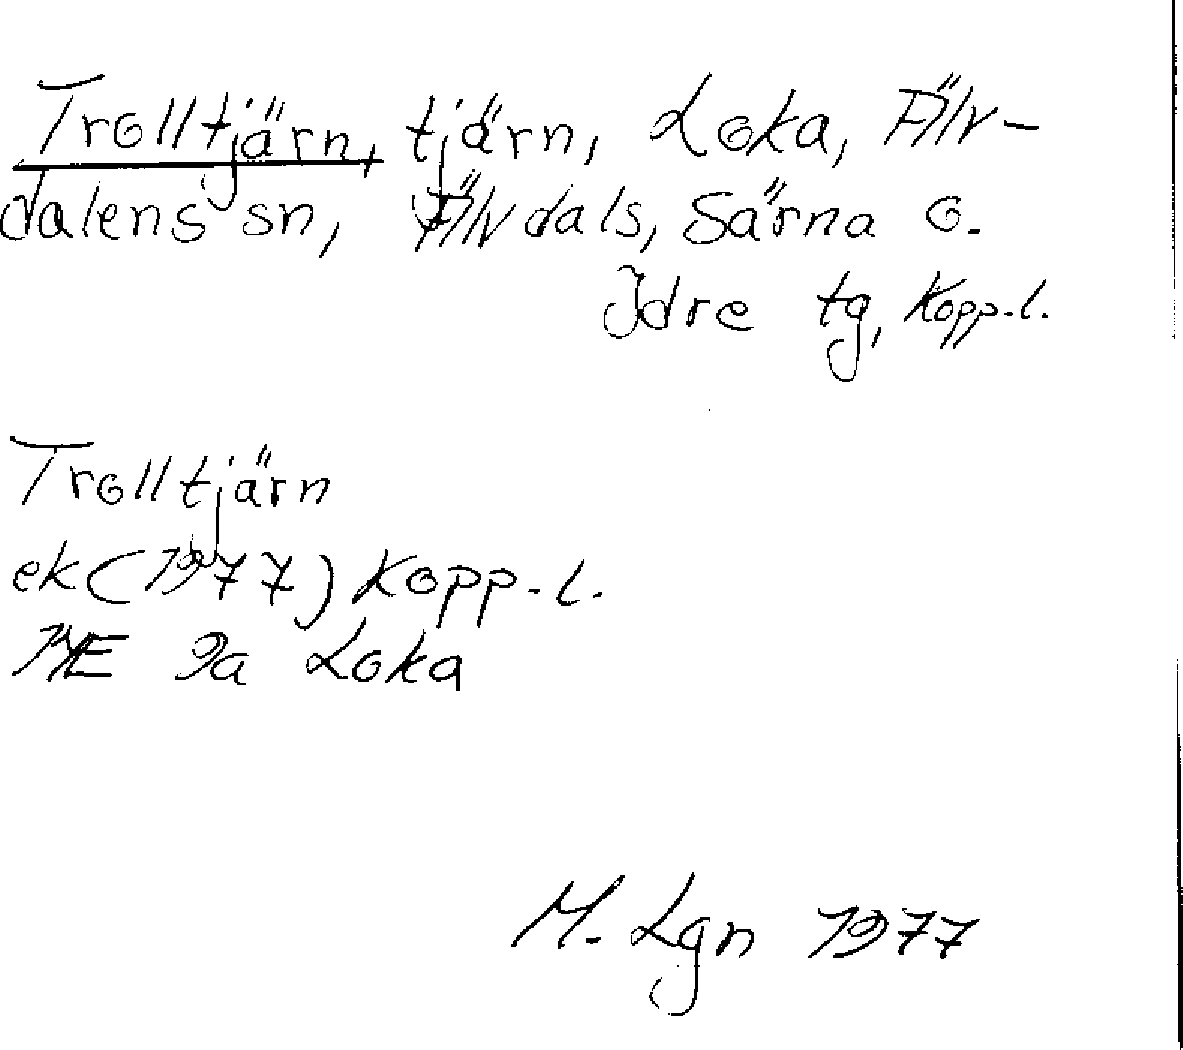 Trolltjärn, tjärn, Loka, Älv-
dalens sn, Älvdals, Särna o.
Idre tg, Kopp.l.
Trolltjärn
ek (1977) Kopp.l.
14E 9a Loka
M. Lgn 1977